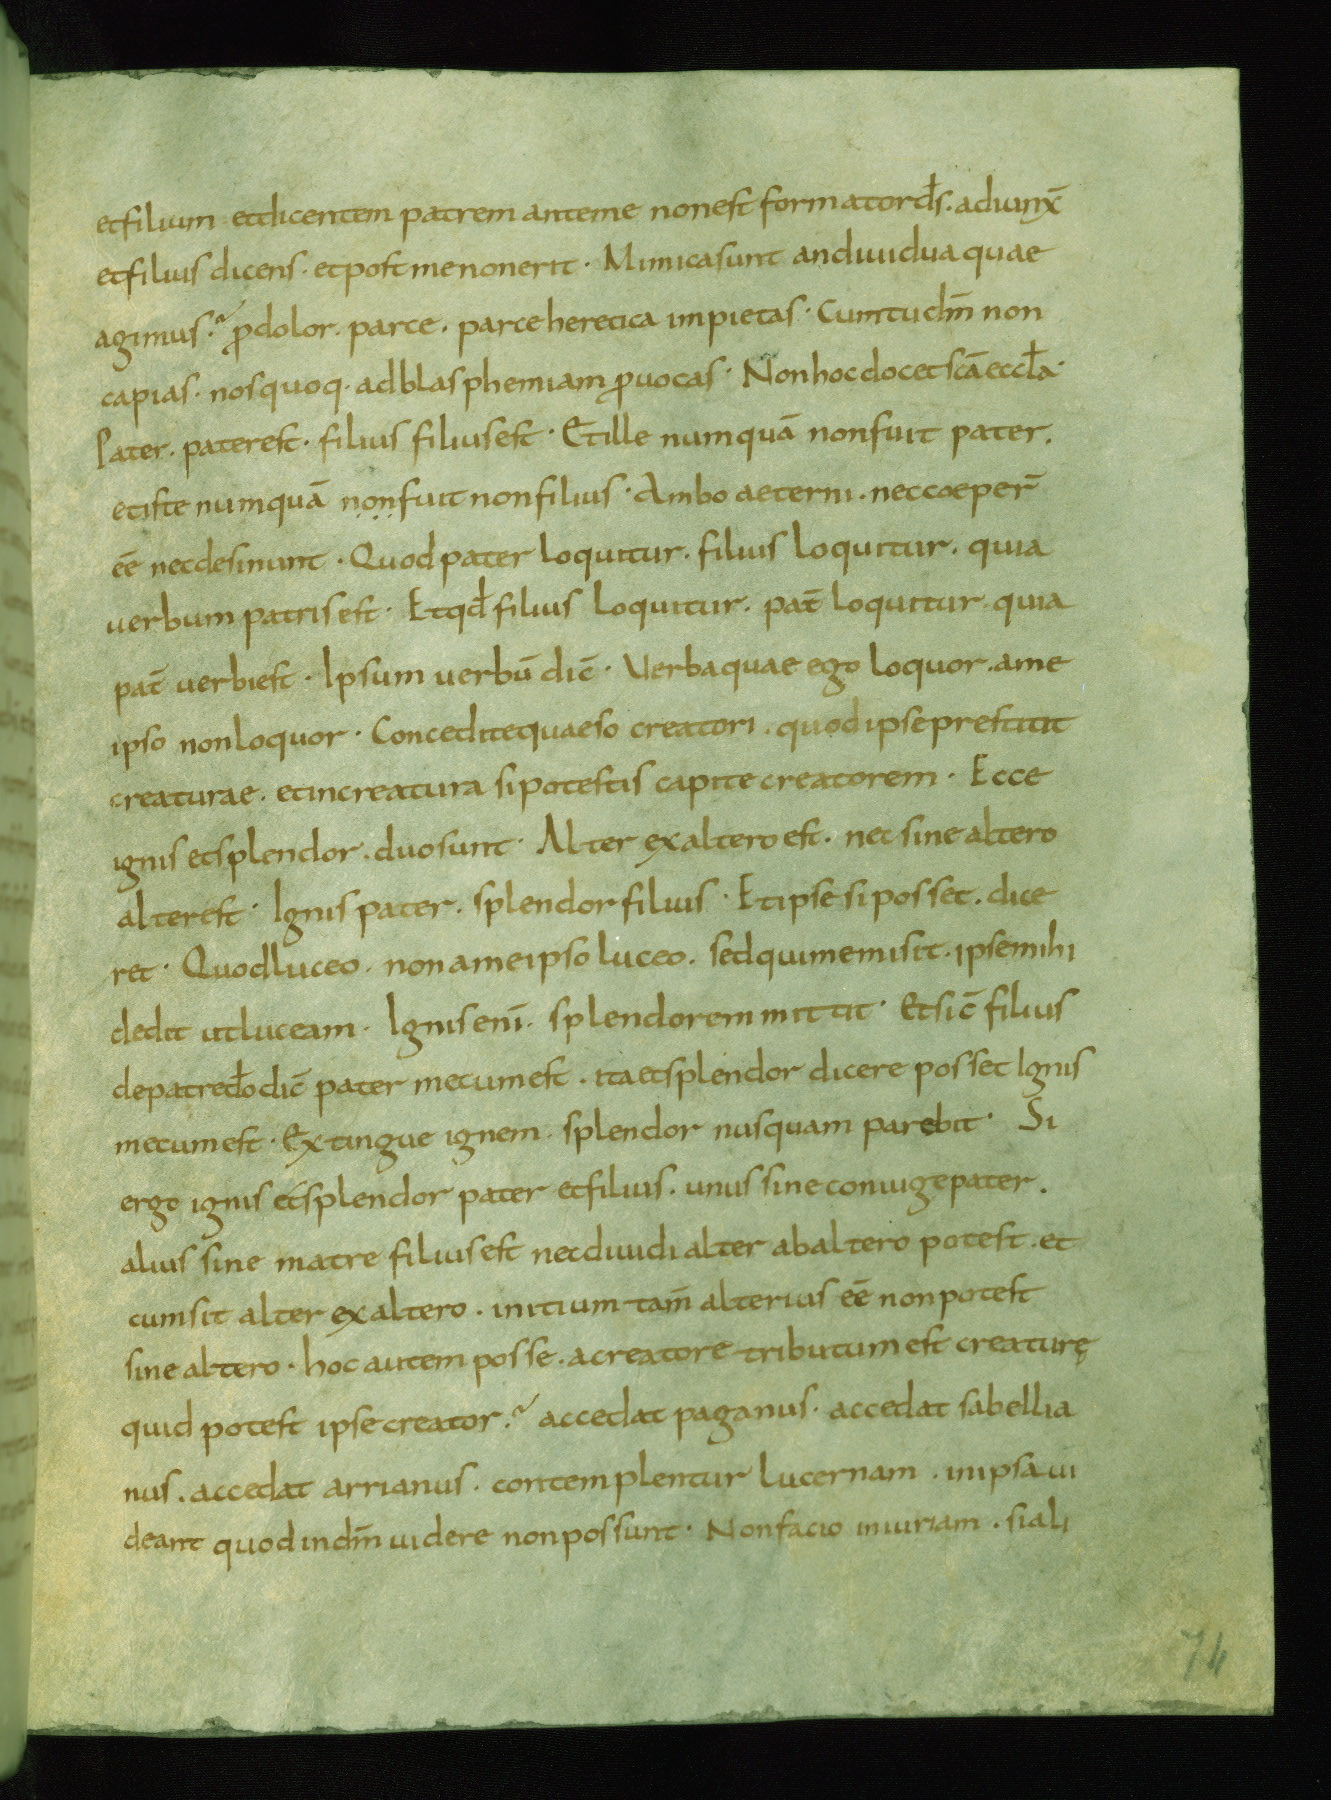 et filium et dicentem patrem ante me non est formator d̄s. adiunx̄
et filius dicens · et post me non erit · Mimica sunt an diuidua quae
agimus? ꝓdolor. parce. parce heretica impietas · Cum tu dm̄ non
capias · nos quoq· ad blasphemiam ꝓuocas · Non hoc docet scā eccl̄a ·
Pater. pater est · filius filius est · Et ille numquā non fuit pater.
et iste numquā non fuit non filius · Ambo aeterni. nec coeper̄
eē nec desinunt · Quod pater loquitur. filius loquitur. quia
uerbum patris est · Et qd̄ filius loquitur. pat̄ loquitur. quia
pat̄ uerbi est · Ipsum uerbū dic̄ · Uerba quae ego loquor. a me
ipso non loquor · Concedite quaeso creatori. quod ipse prestitit
creaturae. et in creatura si potestis capite creatorem · Ecce
ignis et splendor. duo sunt · Alter ex altero est. nec sine altero
alter est · Ignis pater. splendor filius · Et ipse si posset. dice
ret · Quod luceo. non a me ipso luceo. sed qui me misit. ipse mihi
dedit ut luceam · Ignis eni̅. splendorem mittit · Et sic̄ filius
de patre d̄o dic̄ pater mecum est. ita et splendor dicere posset Ignis
mecum est · Extingue ignem. splendor nusquam parebit · Si
ergo ignis et splendor pater et filius. unus sine coniuge pater.
alius sine matre filius est nec diuidi alter ab altero potest. et
cum sit alter ex altero. initium tam̄ alterius eē non potest
sine altero · hoc autem posse. a creatore tributum est creaturę
quid potest ipse creator? accedat paganus · accedat sabellia
nus. accedat arrianus. contemplentur lucernam. in ipsa ui
deant quod in dm̄ uidere non possunt · Non facio iniuriam. si ali
74